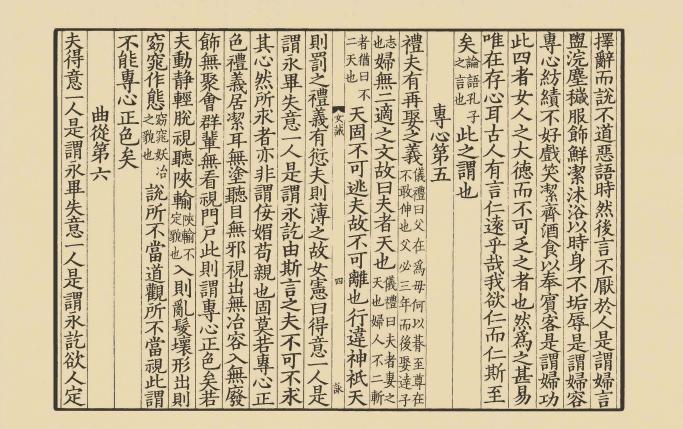 擇辭而說不道惡語時然後言不厭於人是謂婦言
盥浣塵穢服飾鮮潔沐浴以時身不垢辱是謂婦容
專心紡績不好戲笑潔齊酒食以奉賓客是謂婦功
此四者女人之大德而不可乏之者也然為之甚易
唯在存心耳古人有言仁遠乎哉我欲仁而仁斯至
矣論語孔子之言也此之謂也
專心第五
禮夫有再娶之義儀禮曰父在為母何以朞至尊在不敢伸也父必三年而後娶達子
志也婦無二適之文故曰夫者天也儀禮曰夫者妻之天也婦人不二斬
者猶曰不二天也天固不可逃夫故不可離也行違神祇天
女誡 四
則罰之禮義有愆夫則薄之故女憲曰得意一人是
謂永畢失意一人是謂永訖由斯言之夫不可不求
其心然所求者亦非謂佞媚苟親也固莫若專心正
色禮義居潔耳無塗聽目無邪視出無冶容入無廢
飾無聚會群輩無看視門戶此則謂專心正色矣若
夫動靜輕脫視聽陝輸陝輸不定貌也入則亂髮壞形出則
窈窕作態窈窕妖冶之貌也說所不當道觀所不當視此謂
不能專心正色矣
曲從第六
夫得意一人是謂永畢失意一人是謂永訖欲人定